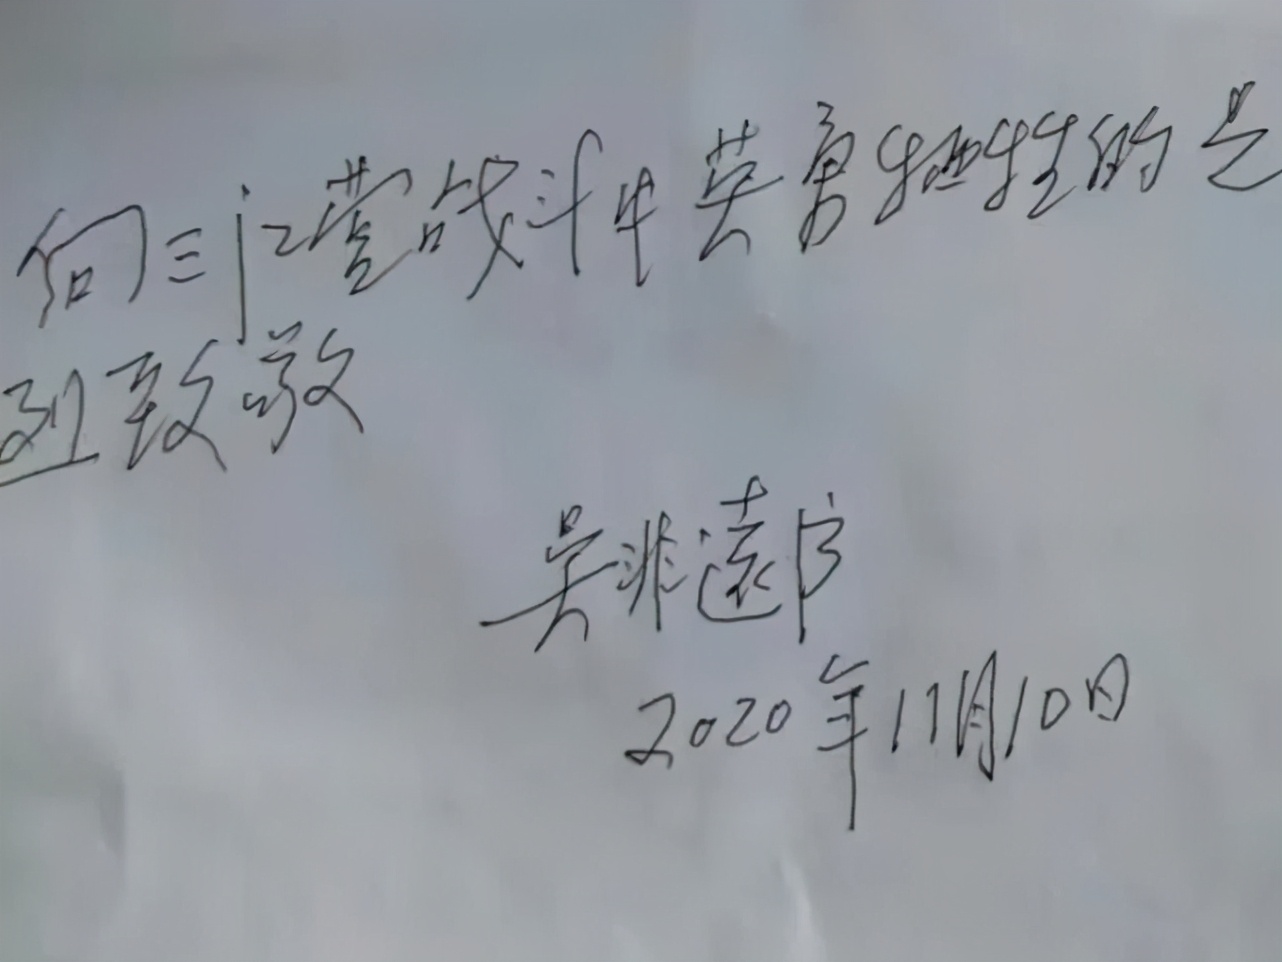 向三江营战斗中英勇牺牲的先
烈致敬
吴非远
2020年11月10日